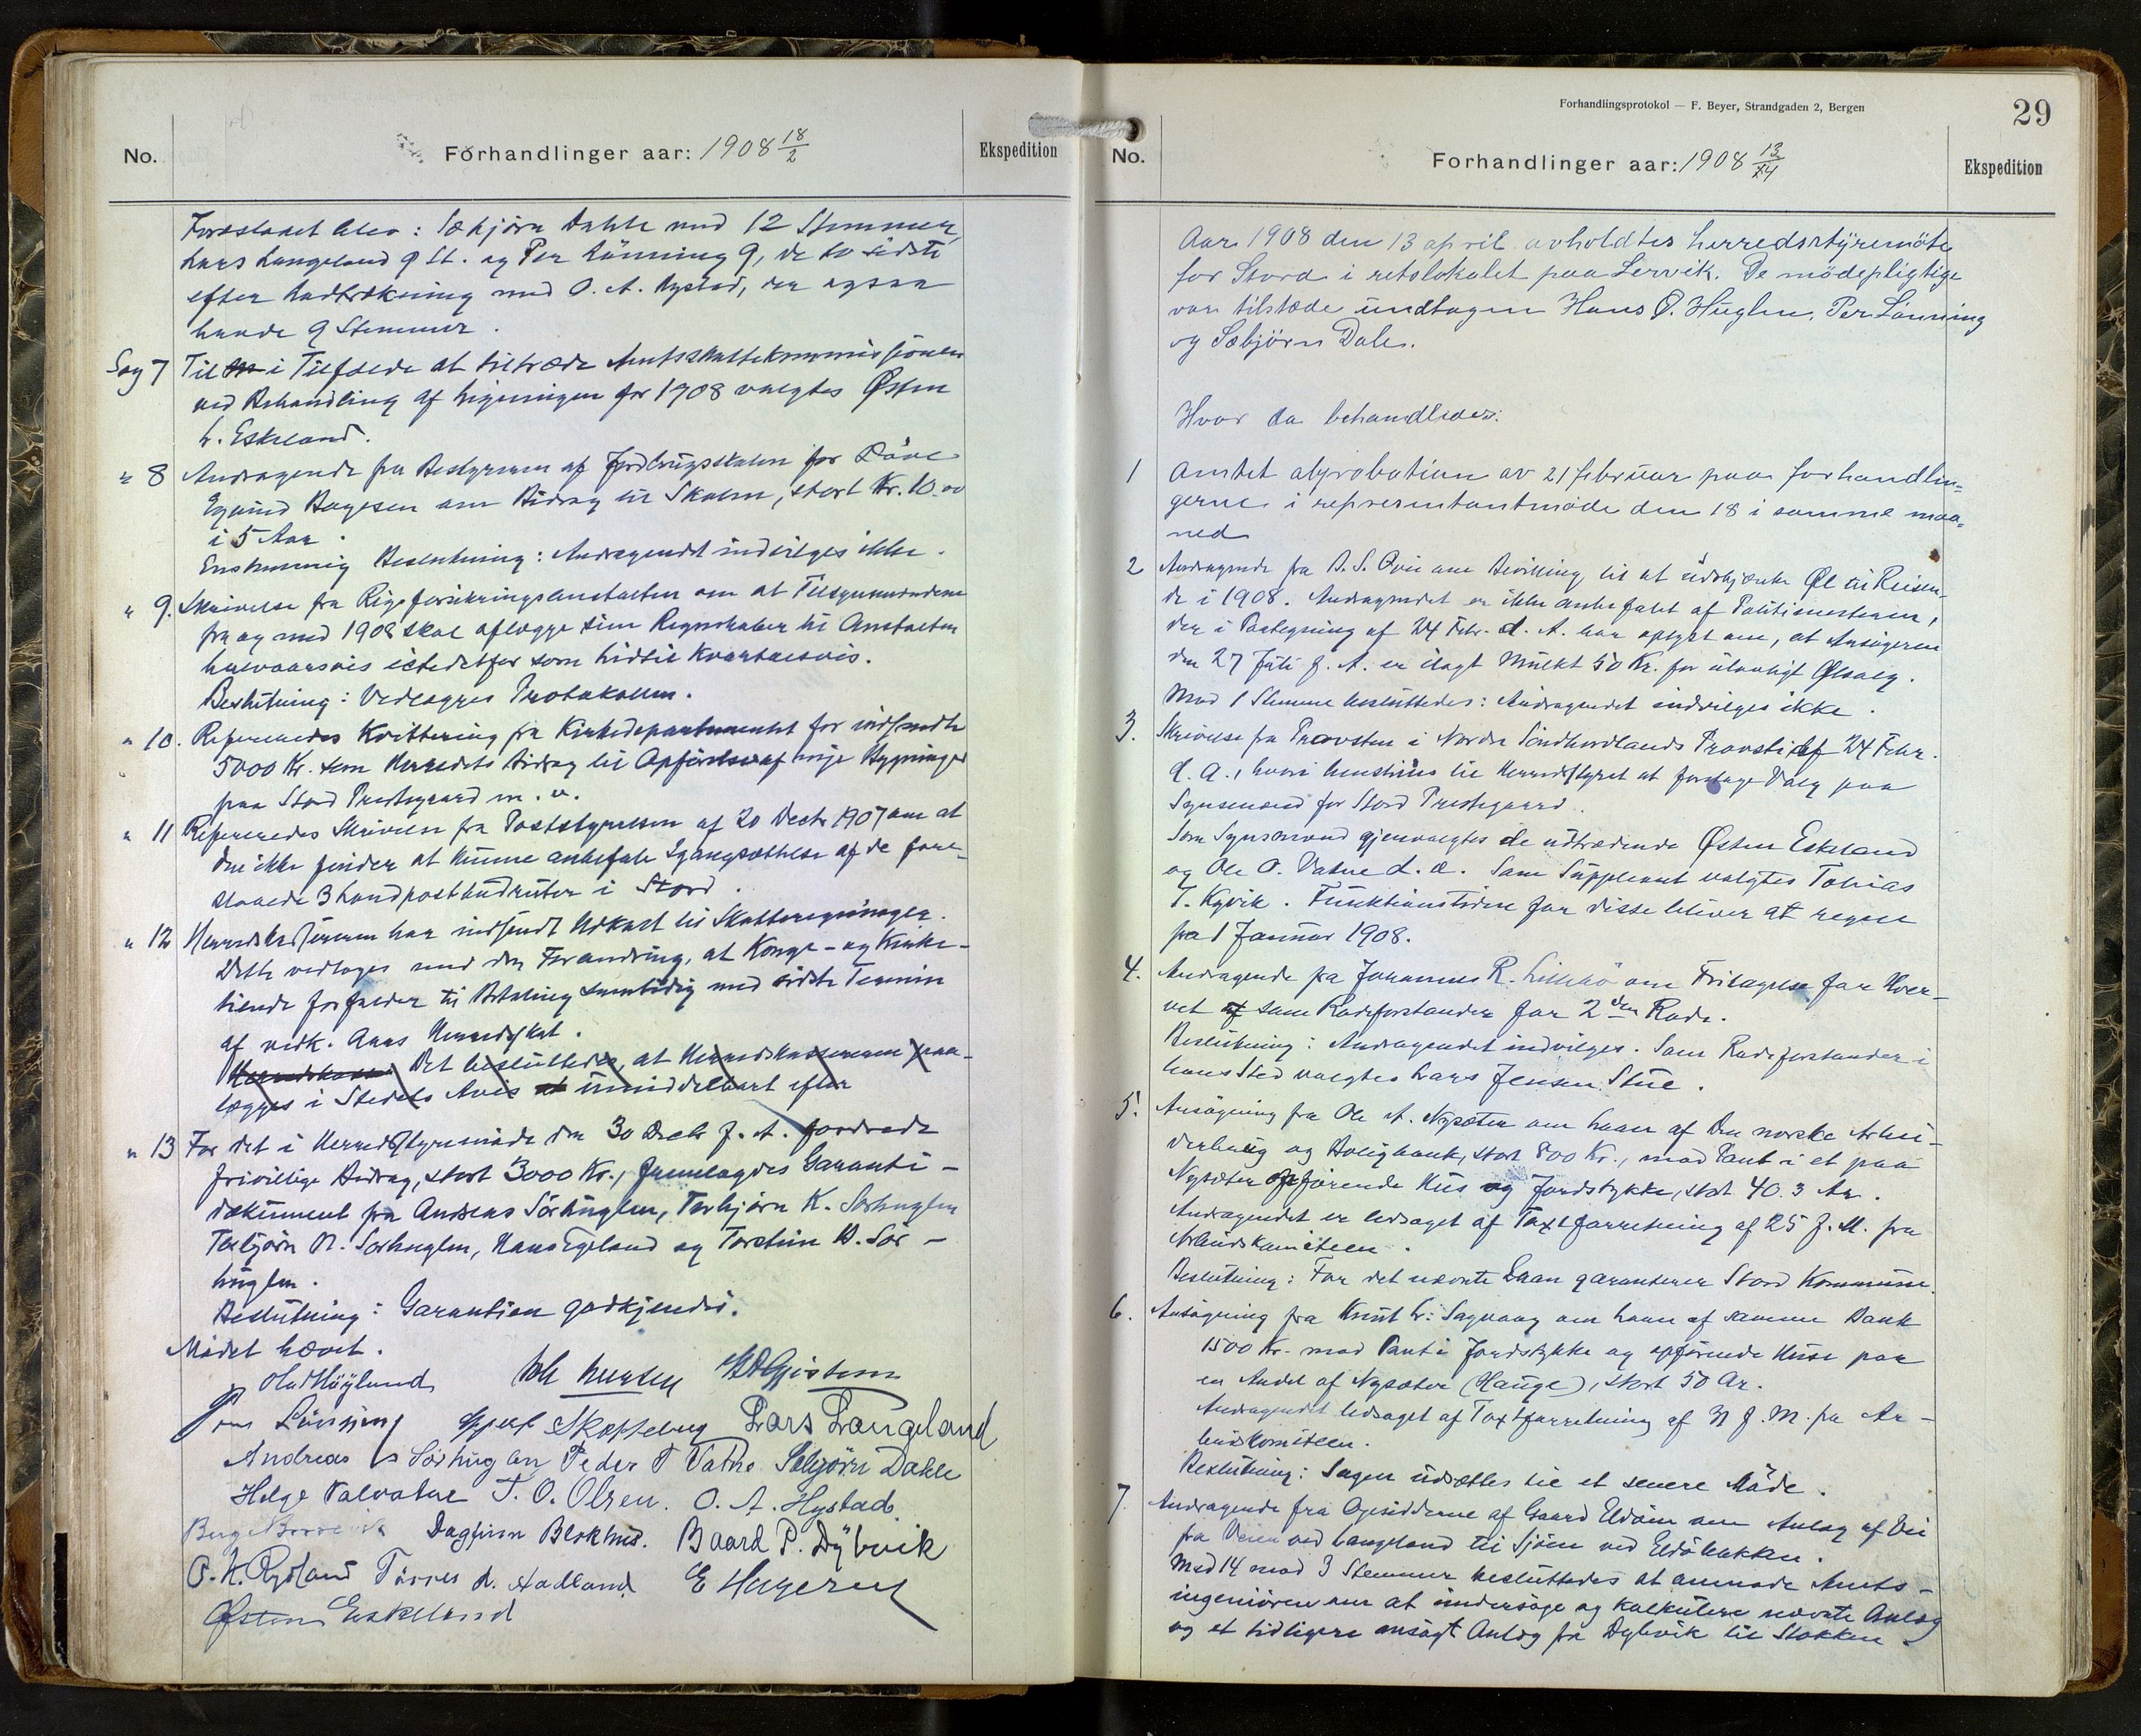 No.
Forhandlinger aar: 1908 18/2
Ekspedition
Foreslaaet blev: Sæbjørn Dahle med 12 Stemmer,
Lars Langeland 9 St. og Per Lönning 9, de to sidste
efter Lodtrækning med O. A. Hystad, der ogsaa
havde 9 Stemmer.
Sag 7 Til i Tilfælde at tiltræde Amtsskattekommissionen
ved Behandling af Ligningen for 1908 valgtes Østen
L. Eskeland.
" 8 Andragende fra Bestyreren af Jordbrugsskolen for Döve
Eyvind Boyesen om Bidrag til Skolen, stort Kr. 10.00
i 5 Aar.
Enstemmig Beslutning: Andragendet indvilges ikke.
" 9. Skrivelse fra Rigsforsikringsanstalten om at Tilsynsmændene
fra og med 1908 skal aflægge sine Regnskaber til Anstalten
halvaarsvis istedetfor som hidtil Kvartalsvis.
Beslutning: Vedlægges Protokollen.
" 10. Refereredes Kvittering fra Kirkedepartementet for indsendte
5000 Kr. som Herredets Bidrag til Opförelse af nye Bygninger
paa Stord Prestegaard m. v.
" 11 Refereredes Skrivelse fra Poststyrelsen af 20 Decbr 1907 om at
den ikke finder at kunne anbefale Igangsættelse af de fore-
slaaede 3 Landpostbudruter i Stord.
" 12 Herredskassereren har indsendt Udkast til Skatteregninger.
Dette vedtages med den Forandring, at Konge- og Kirke-
tiende forfalder til Betaling samtidig med sidste Termin
af vedk. Aars Herredsskat.
Herredskasse Det besluttedes, at Herredskassereren paa-
lægges i Stedets Avis at umiddelbart efter
" 13 For det i Herredsstyremöde den 30 Decbr f. A. fordrede
frivillige Bidrag, stort 3000 Kr., fremlagdes Garanti-
dokument fra Andreas Sörhuglen, Torbjörn K. Sörhuglen
Torbjörn N. Sörhuglen, Hans Egeland og Torstein B. Sör-
huglen.
Beslutning: Garantien godkjendes.
Mödet hævet.
Olaf Höyland
Per Lönning Lars Langeland
Andreas Sörhuglen Peder T Vatne Sæbjörn Dahle
Helge Valvatne T. O. Olsen. O. A. Hystad.
Dagfinn Blokhus. Baard P. Dybvik
Törres A. Aadland E Hageruy
Østen Eskeland
Forhandlingsprotokol — F. Beyer, Strandgaden 2, Bergen
29
No.
Forhandlinger aar: 1908 13/4
Ekspedition
Aar 1908 den 13 april avholdtes herredsstyremöte
for Stord i retslokalet paa Lervik. De mödepligtige
var tilstede undtagen Hans Ø. Huglen, Per Lönning
og Sæbjörn Dale.
Hvor da behandledes:
1 Amtets approbation av 21 februar paa forhandlin=
gerne i representantmöde den 18 i samme maa=
ned
2 Andragende fra B. S. Ovie om Bevilling til at udskjænke Øl til Reisen-
de i 1908. Andragendet er ikke anbefalet af Politimesteren,
der i Paategning af 24 Febr. d. A. har oplyst om, at Ansögeren
den 27 Juli f. A. er ilagt Mulkt 50 Kr. for ulovligt Ølsalg.
Mod 1 Stemme besluttedes: Andragendet indvilges ikke.
3. Skrivelse fra Provsten i Nordre Söndhordlands Provsti af 24 Febr.
d. A., hvori henstilles til Herredsstyret at foretage Valg paa
Synsmænd for Stord Prestegaard.
Som Synsmænd gjenvalgtes de udtrædende Østen Eskeland
og Ole O. Vatne d. æ. Som Suppleant valgtes Tobias
T. Kyvik. Funktionstiden for disse bliver at regne
fra 1 Januar 1908.
4. Andragende fra Johannes R. Lillebö om Fritagelse for Hver-
vet af som Rodeforstander for 2den Rode.
Beslutning: Andragendet indvilges. Som Rodeforstander i
hans Sted valgtes Lars Jensen Stue.
5. Ansögning fra Ole A. Nysæter om Laan af Den norske Arbei-
derbrug og Boligbank, stort 800 Kr., mod Pant i et paa
Nysæter opförende Hus og Jordstykke, stort 40.3 Ar.
Andragendet er ledsaget af Taxtforretning af 25 f. M. fra
Arbeidskomiteen.
Beslutning: For det nævnte Laan garanterer Stord Kommune.
6. Ansögning fra Knut L. Sagvaag om Laan af samme Bank
1500 Kr. mod Pant i Jordstykke og opförende Huse paa
en Andel af Nysæter (Hauge), stort 50 Ar.
Andragendet ledsaget af Taxtforretning af 31 f. M. fra Ar-
beidskomiteen.
Beslutning: Sagen udsættes til et senere Möde.
7. Andragende fra Opsidderne af Gaard Eldöen om Anlæg af Vei
fra Veien ved Langeland til Sjöen ved Eldöbakken.
Med 14 mod 3 Stemmer besluttedes at anmode Amts-
ingeniören om at undersöge og kalkulere nævnte Anlæg
og et tidligere ansögt Anlæg fra Dybvik til Stokken.